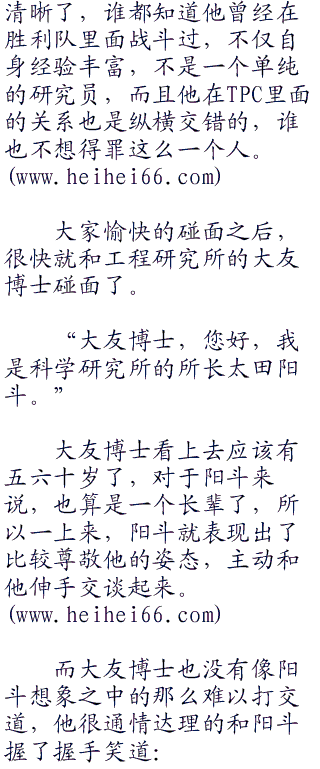 清晰了，谁都知道他曾经在
胜利队里面战斗过，不仅自
身经验丰富，不是一个单纯
的研究员，而且他在TPC里面
的关系也是纵横交错的，谁
也不想得罪这么一个人。
(www.heihei66.com)
大家愉快的碰面之后，
很快就和工程研究所的大友
博士碰面了。
“大友博士，您好，我
是科学研究所的所长太田阳
斗。”
大友博士看上去应该有
五六十岁了，对于阳斗来
说，也算是一个长辈了，所
以一上来，阳斗就表现出了
比较尊敬他的姿态，主动和
他伸手交谈起来。
(www.heihei66.com)
而大友博士也没有像阳
斗想象之中的那么难以打交
道，他很通情达理的和阳斗
握了握手笑道：